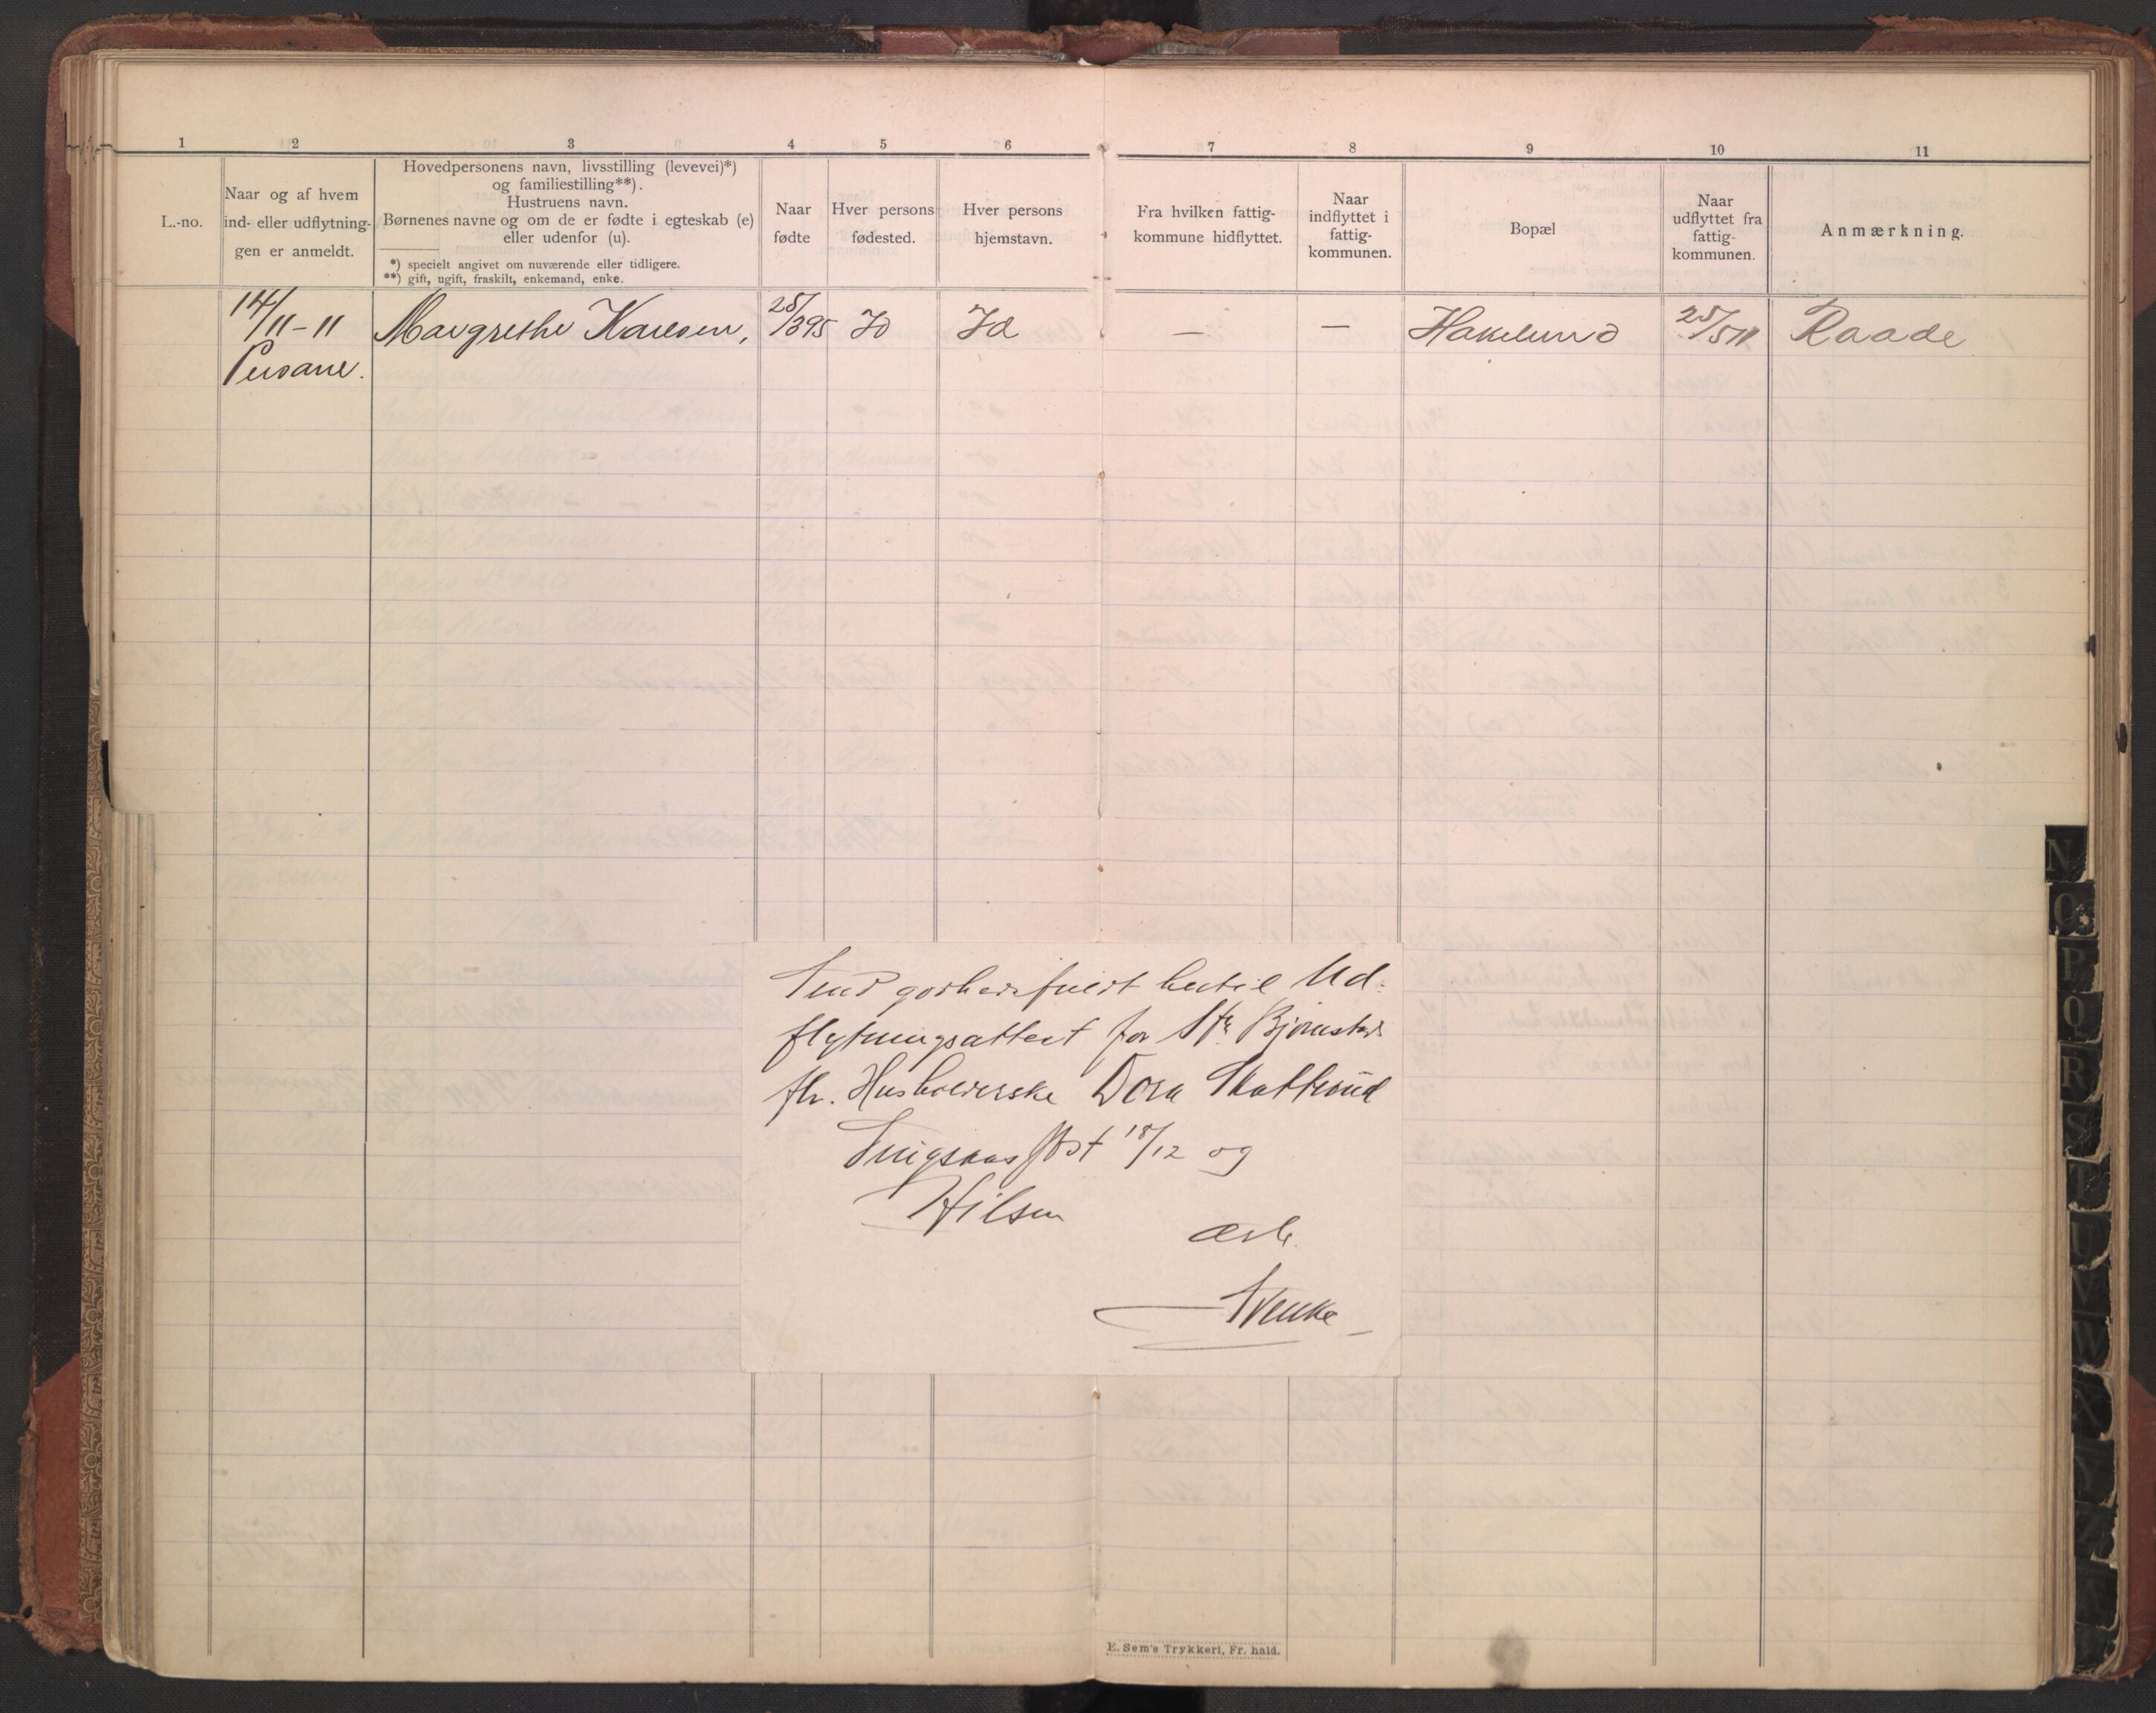 1 2 3 4 5 6 7 8 9 10 11
L.-no.
Naar og af hvem
ind- eller udflytnin-
gen er anmeldt.
Hovedpersonens navn, livsstilling (levevei)*)
og familiestilling**).
Hustruens navn.
Børnenes navne og om de er fødte i egteskab (e)
eller udenfor (u).
*) specielt angivet om nuværende eller tidligere.
**) gift, ugift, fraskilt, enkemand, enke.
Naar
fødte
Hver persons
fødested.
Hver persons
hjemstavn.
Fra hvilken fattig-
kommune hidflyttet.
Naar
indflyttet i
fattig-
kommunen.
Bopæl
Naar
udflyttet fra
fattig-
kommunen.
Anmærkning.
14/11-11 Margrethe Karlsen, 25/3 95 Id Id — — Hakelund 25/5 11 Raade
Send godhedsfuldt hertil Ud-
flytningsattest for
fhv. Husholderske Dora Skattrud
18/12 og
Hilsen
Ærb.
E. Sem's Trykkeri, Fr. hald.
N
O
P
Q
R
S
T
U
V
W
X
Y
Z